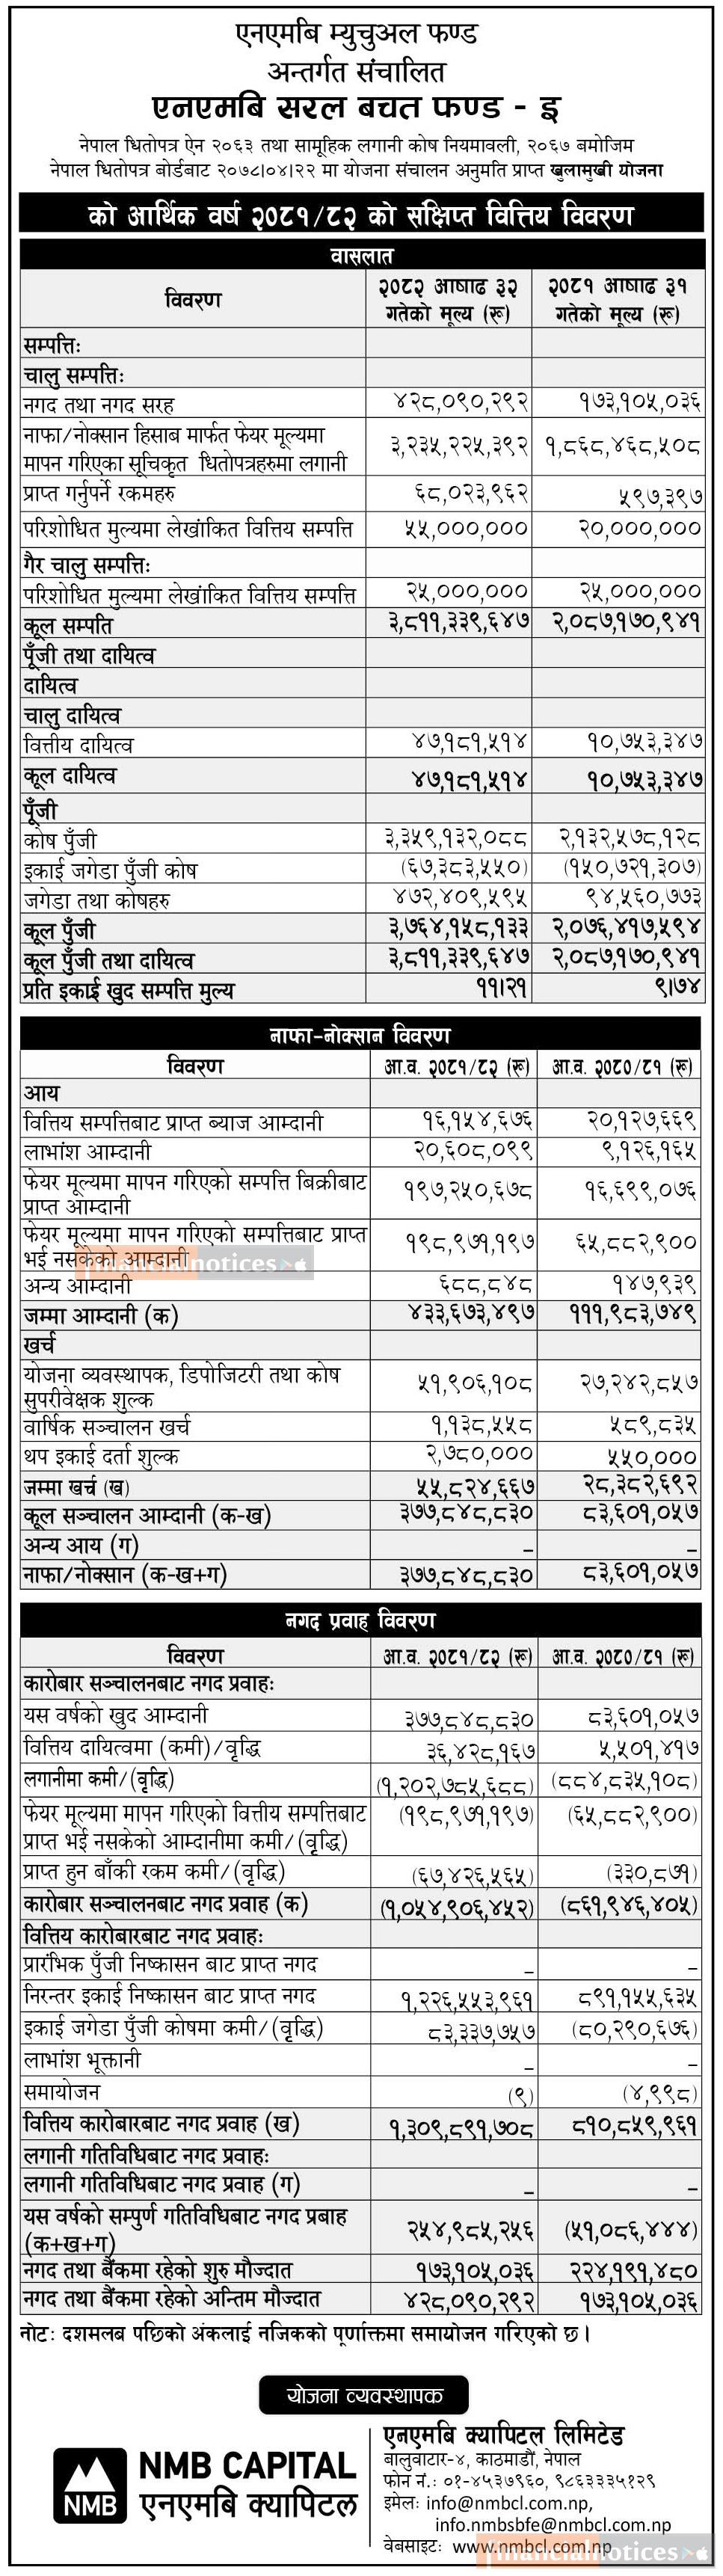 एनएमबि म्युचुअल फण्ड
अन्तर्गत संचालित
एनएमबि सरल बचत फण्ड - इ
नेपाल धितोपत्र ऐन २०६३ तथा सामूहिक लगानी कोष नियमावली, २०६७ बमोजिम
नेपाल धितोपत्र बोर्डबाट २०७८।०४।२२ मा योजना संचालन अनुमति प्राप्त खुलामुखी योजना
को आर्थिक वर्ष २०८१/८२ को संक्षिप्त वित्तिय विवरण
वासलात
विवरण २०८२ आषाढ ३२ गतेको मूल्य (रू) २०८१ आषाढ ३१ गतेको मूल्य (रू)
सम्पत्तिः
चालु सम्पत्तिः
नगद तथा नगद सरह ४२८,०९०,२९२ १७३,१०५,०३६
नाफा/नोक्सान हिसाब मार्फत फेयर मूल्यमा
मापन गरिएका सूचिकृत धितोपत्रहरुमा लगानी ३,२३५,२२५,३९२ १,८६८,४६८,५०८
प्राप्त गर्नुपर्ने रकमहरु ६८,०२३,९६२ ५९७,३९७
परिशोधित मुल्यमा लेखांकित वित्तिय सम्पत्ति ५५,०००,००० २०,०००,०००
गैर चालु सम्पत्तिः
परिशोधित मुल्यमा लेखांकित वित्तिय सम्पत्ति २५,०००,००० २५,०००,०००
कूल सम्पति ३,८११,३३९,६४७ २,०८७,१७०,९४१
पूँजी तथा दायित्व
दायित्व
चालु दायित्व
वित्तीय दायित्व ४७,१८१,५१४ १०,७५३,३४७
कूल दायित्व ४७,१८१,५१४ १०,७५३,३४७
पूँजी
कोष पुँजी ३,३५९,१३२,०८८ २,१३२,५७८,१२८
इकाई जगेडा पुँजी कोष (६७,३८३,५५०) (१५०,७२१,३०७)
जगेडा तथा कोषहरु ४७२,४०९,५९५ ९४,५६०,७७३
कूल पुँजी ३,७६४,१५८,१३३ २,०७६,४१७,५९४
कूल पुँजी तथा दायित्व ३,८११,३३९,६४७ २,०८७,१७०,९४१
प्रति इकाई खुद सम्पत्ति मुल्य ११।२१ ९।७४
नाफा-नोक्सान विवरण
विवरण आ.व. २०८१/८२ (रू) आ.व. २०८०/८१ (रू)
आय
वित्तिय सम्पत्तिबाट प्राप्त ब्याज आम्दानी १६,१५४,६७६ २०,१२७,६६९
लाभांश आम्दानी २०,६०८,०९९ ९,१२६,१६५
फेयर मूल्यमा मापन गरिएको सम्पत्ति बिक्रीबाट
प्राप्त आम्दानी १९७,२५०,६७८ १६,६९९,०७६
फेयर मूल्यमा मापन गरिएको सम्पत्तिबाट प्राप्त
भई नसकेको आम्दानी १९८,९७१,१९७ ६५,८८२,९००
financialnotices
अन्य आम्दानी ६८८,८४८ १४७,९३९
जम्मा आम्दानी (क) ४३३,६७३,४९७ १११,९८३,७४९
खर्च
योजना व्यवस्थापक, डिपोजिटरी तथा कोष
सुपरीवेक्षक शुल्क ५१,९०६,१०८ २७,२४२,८५७
वार्षिक सञ्चालन खर्च १,१३८,५५८ ५८९,८३५
थप इकाई दर्ता शुल्क २,७८०,००० ५५०,०००
जम्मा खर्च (ख) ५५,८२४,६६७ २८,३८२,६९२
कूल सञ्चालन आम्दानी (क-ख) ३७७,८४८,८३० ८३,६०१,०५७
अन्य आय (ग) – –
नाफा/नोक्सान (क-ख+ग) ३७७,८४८,८३० ८३,६०१,०५७
नगद प्रवाह विवरण
विवरण आ.व. २०८१/८२ (रू) आ.व. २०८०/८१ (रू)
कारोबार सञ्चालनबाट नगद प्रवाहः
यस वर्षको खुद आम्दानी ३७७,८४८,८३० ८३,६०१,०५७
वित्तिय दायित्वमा (कमी)/वृद्धि ३६,४२८,१६७ ५,५०१,४१७
लगानीमा कमी/(वृद्धि) (१,२०२,७८५,६८८) (८८४,८३५,१०८)
फेयर मूल्यमा मापन गरिएको वित्तीय सम्पत्तिबाट
प्राप्त भई नसकेको आम्दानीमा कमी/(वृद्धि) (१९८,९७१,१९७) (६५,८८२,९००)
प्राप्त हुन बाँकी रकम कमी/(वृद्धि) (६७,४२६,५६५) (३३०,८७१)
कारोबार सञ्चालनबाट नगद प्रवाह (क) (१,०५४,९०६,४५२) (८६१,९४६,४०५)
वित्तिय कारोबारबाट नगद प्रवाहः
प्रारंभिक पुँजी निष्कासन बाट प्राप्त नगद – –
निरन्तर इकाई निष्कासन बाट प्राप्त नगद १,२२६,५५३,९६१ ८९१,१५५,६३५
इकाई जगेडा पुँजी कोषमा कमी/(वृद्धि) ८३,३३७,७५७ (८०,२९०,६७६)
लाभांश भूक्तानी – –
समायोजन (९) (४,९९८)
वित्तिय कारोबारबाट नगद प्रवाह (ख) १,३०९,८९१,७०८ ८१०,८५९,९६१
लगानी गतिविधिबाट नगद प्रवाहः
लगानी गतिविधिबाट नगद प्रवाह (ग) – –
यस वर्षको सम्पुर्ण गतिविधिबाट नगद प्रबाह
(क+ख+ग) २५४,९८५,२५६ (५१,०८६,४४४)
नगद तथा बैंकमा रहेको शुरु मौज्दात १७३,१०५,०३६ २२४,१९१,४८०
नगद तथा बैंकमा रहेको अन्तिम मौज्दात ४२८,०९०,२९२ १७३,१०५,०३६
नोटः दशमलब पछिको अंकलाई नजिकको पूर्णाक्तमा समायोजन गरिएको छ।
योजना व्यवस्थापक
NMB
NMB CAPITAL
एनएमबि क्यापिटल
एनएमबि क्यापिटल लिमिटेड
बालुवाटार-४, काठमाडौं, नेपाल
फोन नं.: ०१-४५३७९६०, ९८६३३३५१२९
इमेलः info@nmbcl.com.np,
info.nmbsbfe@nmbcl.com.np
वेबसाइटः www.nmbcl.com.np
financialnotices